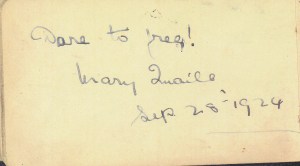 Dare to free!
Mary Quaile
Sep 28 1924